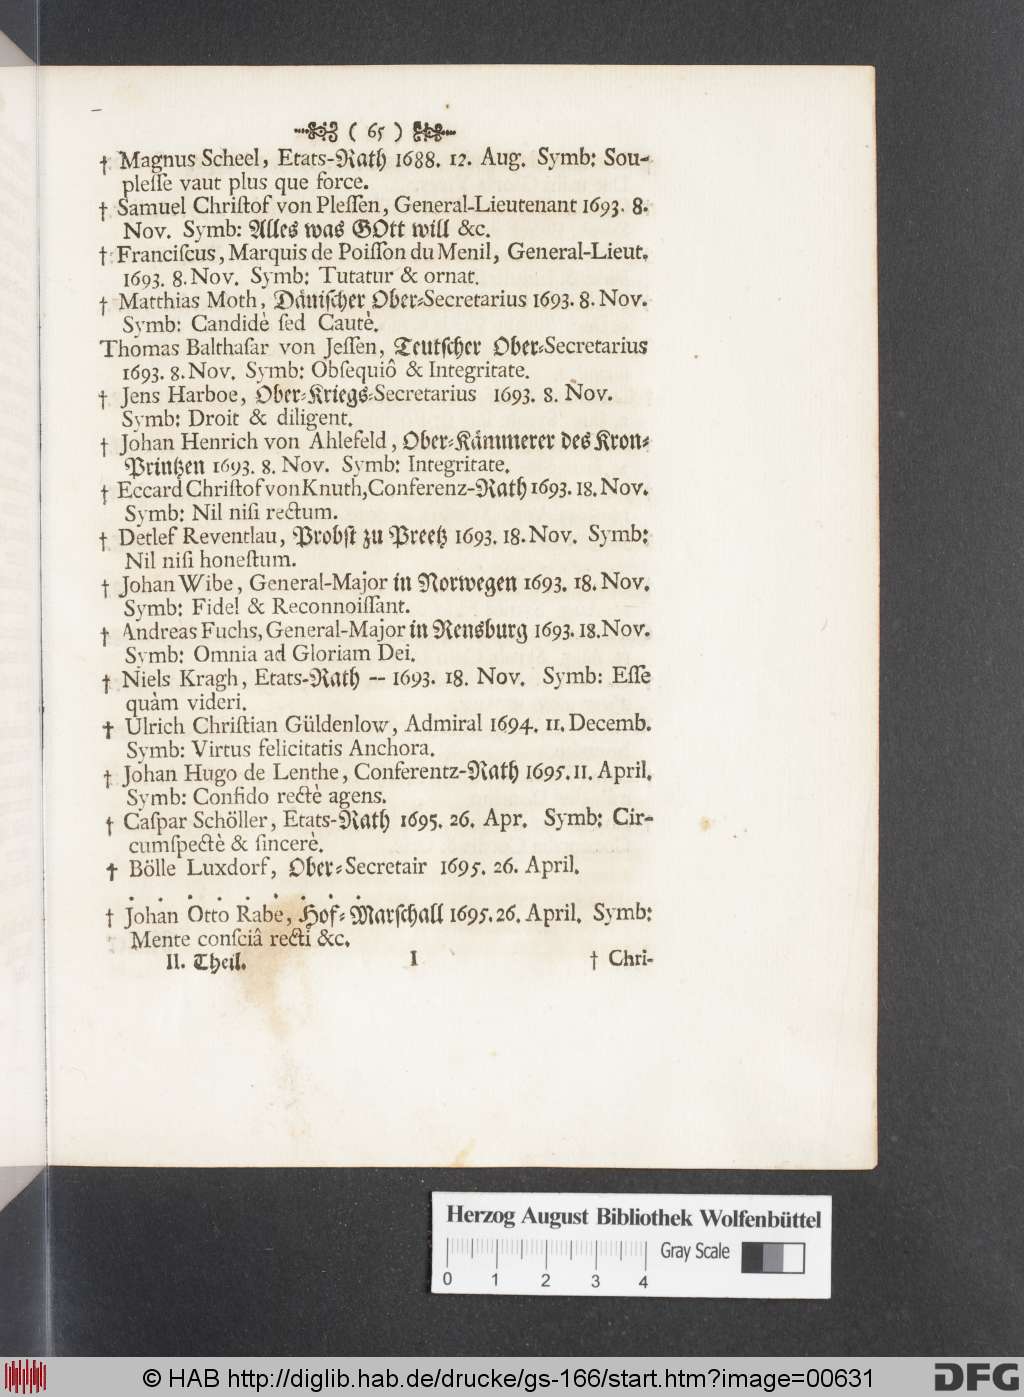 ( 65 )
† Magnus Scheel, Etats-Rath 1688. 12. Aug. Symb: Sou-
pleſſe vaut plus que force.
† Samuel Chriſtof von Pleſſen, General-Lieutenant 1693. 8.
Nov. Symb: Alles was GOtt will &c.
† Franciſcus, Marquis de Poiſſon du Menil, General-Lieut.
1693. 8. Nov. Symb: Tutatur & ornat.
† Matthias Moth, Däniſcher Ober-Secretarius 1693. 8. Nov.
Symb: Candidè ſed Cautè.
Thomas Balthaſar von Jeſſen, Teutſcher Ober-Secretarius
1693. 8. Nov. Symb: Obſequiô & Integritate.
† Jens Harboe, Ober-Kriegs-Secretarius 1693. 8. Nov.
Symb: Droit & diligent.
† Johan Henrich von Ahlefeld, Ober-Kämmerer des Kron-
Printzen 1693. 8. Nov. Symb: Integritate.
† Eccard Chriſtof von Knuth, Conferenz-Rath 1693. 18. Nov.
Symb: Nil niſi rectum.
† Detlef Reventlau, Probſt zu Preetz 1693. 18. Nov. Symb:
Nil niſi honeſtum.
† Johan Wibe, General-Major in Norwegen 1693. 18. Nov.
Symb: Fidel & Reconnoiſſant.
† Andreas Fuchs, General-Major in Rensburg 1693. 18. Nov.
Symb: Omnia ad Gloriam Dei.
† Niels Kragh, Etats-Rath -- 1693. 18. Nov. Symb: Eſſe
quàm videri.
† Ulrich Chriſtian Güldenlow, Admiral 1694. 11. Decemb.
Symb: Virtus felicitatis Anchora.
† Johan Hugo de Lenthe, Conferentz-Rath 1695. 11. April.
Symb: Confido rectè agens.
† Caſpar Schöller, Etats-Rath 1695. 26. Apr. Symb: Cir-
cumſpectè & ſincerè.
† Bölle Luxdorf, Ober-Secretair 1695. 26. April.
. . . . . . . . .
† Johan Otto Rabe, Hof-Marſchall 1695. 26. April. Symb:
Mente conſciâ recti &c.
II. Theil. I † Chri-
Herzog August Bibliothek Wolfenbüttel
Gray Scale
0 1 2 3 4
© HAB http://diglib.hab.de/drucke/gs-166/start.htm?image=00631
DFG